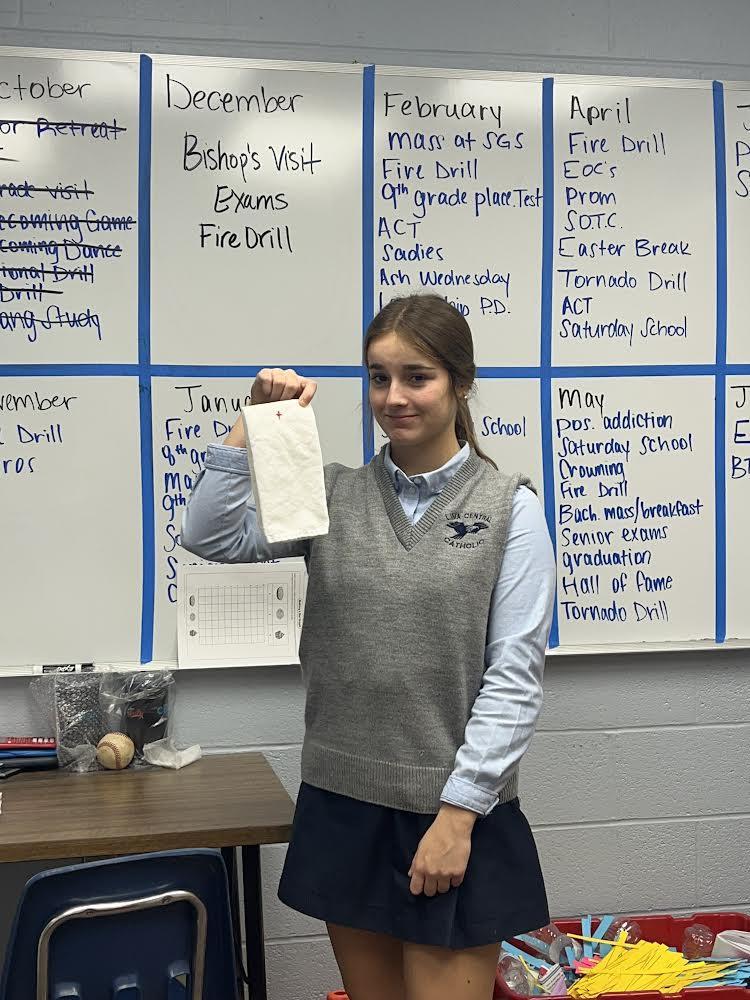 ctober
or Retreat
rade visit
ecoming Game
coming Dance
ional Drill
Drill
ang Study
December
Bishop's Visit
Exams
Fire Drill
February
Mass at SGS
Fire Drill
9th grade place. Test
ACT
Sadies
Ash Wednesday
P.D.
April
Fire Drill
EOC's
Prom
S.O.T.C.
Easter Break
Tornado Drill
ACT
Saturday School
vember
Drill
ros
Janu
Fire D
8th gr
Ma
9th
School
May
pos. addiction
Saturday School
Crowning
Fire Drill
Bach. mass/breakfast
Senior exams
graduation
Hall of Fame
Tornado Drill
LIMA CENTRAL
CATHOLIC